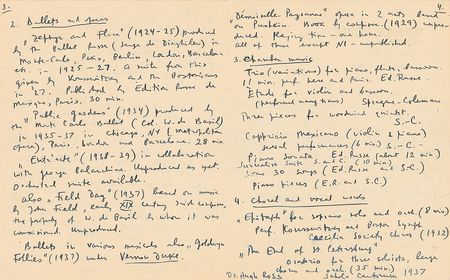 3.
2. Ballets and operas
"Zephyr and Flora" (1924-25) produced
by the Ballet Russe (Serge de Diaghilev) in
Monte-Carlo, Paris, Berlin, London, Barcelona
etc. in 1925-27. A suite from this
given by Koussevitzky and the Bostonians
in '27. Published by Edition Russe de
Musique, Paris. 30 min.
"Public gardens" (1934) produced by
the Monte Carlo Ballet (Col. W. de Basil)
in 1935-37 in Chicago, NY (Metropolitan
opera), Paris, London and Barcelona. 28 min.
"Entr'acte" (1938-39) in collaboration
with George Balanchine. Unproduced as yet.
Orchestral suite available.
also "Field Day" (1937) based on music
by John Field, early XIX century Irish composer,
the property of W. de Basil by whom it was
commissioned. Unproduced.
Ballets in various musicals also "Goldwyn
Follies" (1937) under Vernon Duke.
4.
"Demoiselle Paysanne" opera in 2 acts based
on Pushkin. Book by composer. (1929) unpro-
duced. Playing time - one hour.
All of these except N1 - unpublished.
3. Chamber music
Trio (variations) for piano, flute, bassoon.
11 min. perf. here and Paris. Ed. Russe
Etude for violin and bassoon.
(performed many times) Sprague-Coleman
Three pieces for woodwind quintet.
S.-C.
Capriccio Mexicano (violin & piano)
several performances (6 min) S.-C.
Piano Sonata Ed. Russe (about 12 min)
Surrealist Suite S. and C. (10 min)
Some 30 songs (Ed. Russe and S.C.)
Piano pieces (E.R. and S.C.)
4. Choral and vocal works
"Epitaph" for soprano solo and orch. (8 min)
Perf. Koussevitzky and Boston Symph.
Cecilia Society chorus (1932)
"The End of St Petersburg"
oratorio for three soloists, large
chorus and orch. (35 min.)
Dr. Hugh Ross Schola Cantorum 1937